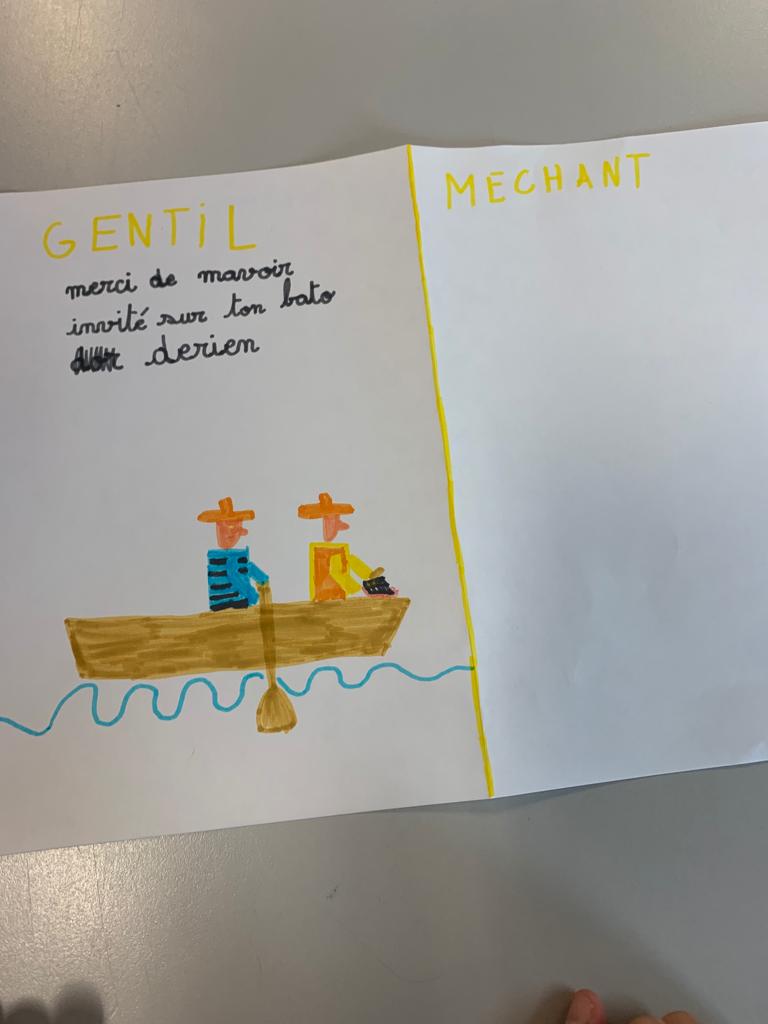 GENTiL
merci de mavoir
invité sur ton bato
derien
MECHANT